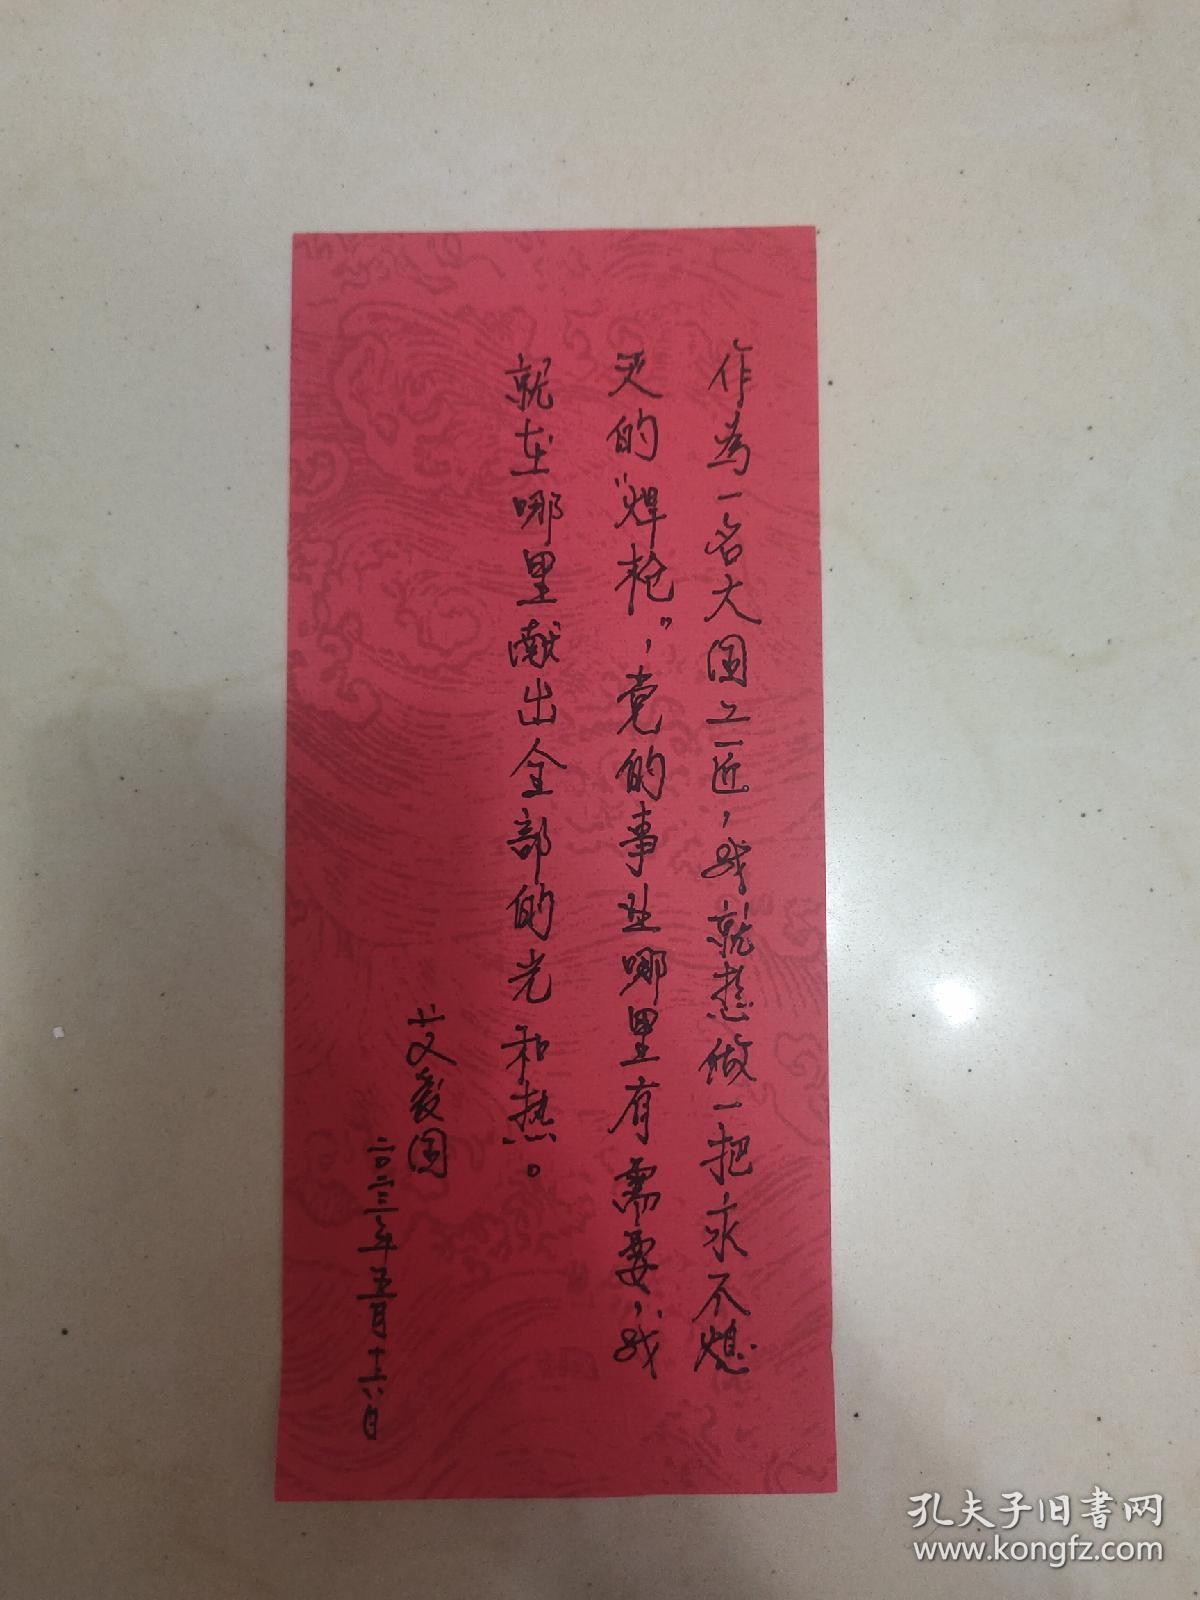 作为一名大国工匠，我就想做一把永不熄
灭的“焊枪”，党的事业哪里有需要，我
就在哪里献出全部的光和热。
艾爱国
二〇二三年五月十六日
孔夫子旧书网
www.kongfz.com